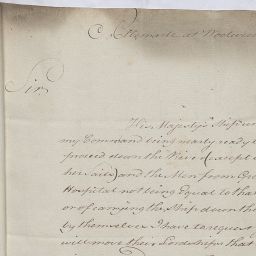 at Woolwich
Sir
His Majesty's Ship under
my Command being nearly ready to
proceed down the River (except
her sails) and the Men from
Hospital not being Equal to that
or of carrying the Ship down the
by themselves I have to request
will move their Lordships that